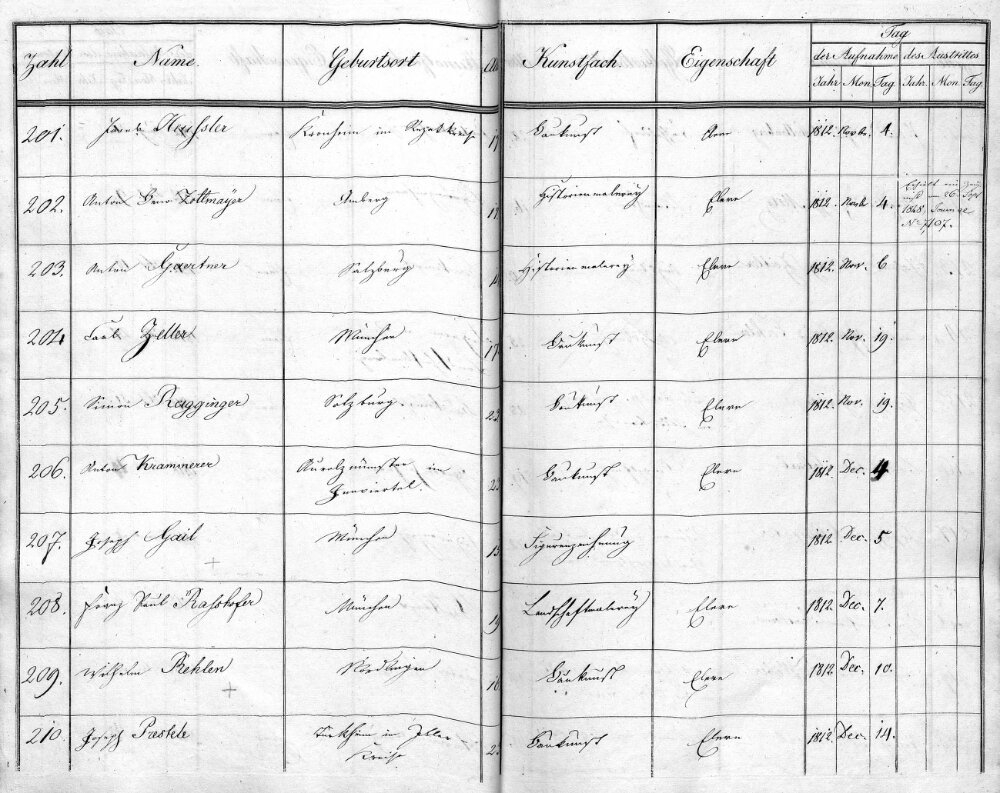 Zahl Name. Geburtsort Kunstfach. Eigenschaft Tag
der Aufnahme des Austrittes
Jahr Mon. Tag Jahr. Mon. Tag
201. Häussler Kronheim im Rezat Kreise 17 Baukunst Eleve 1812. Novb. 4.
202. Anton Zottmayer Amberg Historienmalerey Eleve 1812. Novb. 4.
1848.
N. 7407.
203. Anton Gaertner Salzburg Historienmalerey Eleve 1812. Nov. 6
204 Carl Zeller München 17. Baukunst Eleve 1812. Nov. 19.
205. Simon Ragginger Salzburg. 23. Baukunst Eleve 1812. Nov. 19.
206. Anton Krammerer Aurolzmünster im
Innviertel. 22. Baukunst Eleve 1812. Dec. 4
207. Joseph Gail München 13. Figurenzeichnung 1812. Dec. 5
+
208. Franz Paul Rasshofer München 19. Landschaftmalerey Eleve 1812. Dec. 7.
209. Wilhelm Rehlen Nördlingen Baukunst Eleve 1812. Dec. 10.
+
210. Joseph Türkheim im Iller
Kreise Baukunst Eleve 1812. Dec. 14.